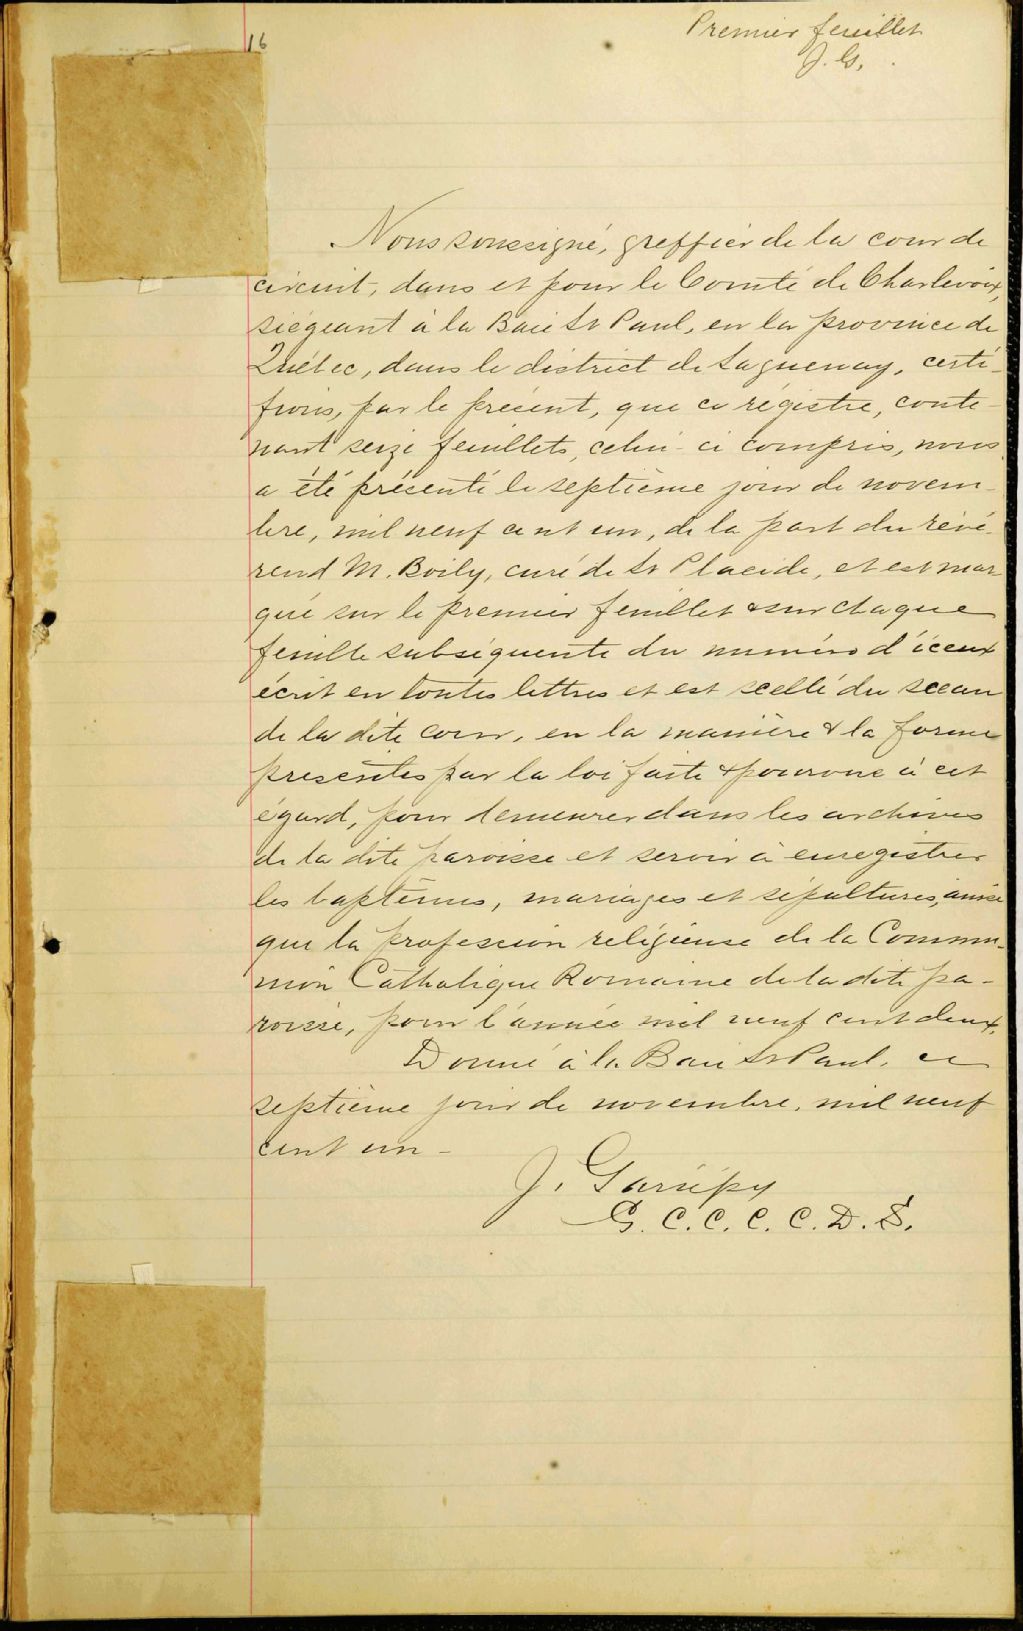 16
Premier feuillet
J. G.
Nous soussigné, greffier de la cour de
circuit, dans et pour le Comté de Charlevoix,
siégeant à la Baie St Paul, en la province de
Québec, dans le district de Saguenay, certi-
fions, par le présent, que ce régistre, conte-
nant seize feuillets, celui-ci compris, nous
a été présenté le septième jour de novem-
bre, mil neuf cent un, de la part du révé-
rend M. Boily, curé de St Placide, et est mar
qué sur le premier feuillet & sur chaque
feuille subséquente du numéro d'iceux
écrit en toutes lettres et est scellé du sceau
de la dite cour, en la manière & la forme
prescrites par la loi faite & pourvue à cet
égard, pour demeurer dans les archives
de la dite paroisse et servir à enregistrer
les baptêmes, mariages et sépultures, ainsi
que la profession religieuse de la Commu-
nion Catholique Romaine de la dite pa-
roisse, pour l'année mil neuf cent deux.
Donné à la Baie St Paul, ce
septième jour de novembre, mil neuf
cent un -
J. Gariépy
G. C. C. C. C. D. S.